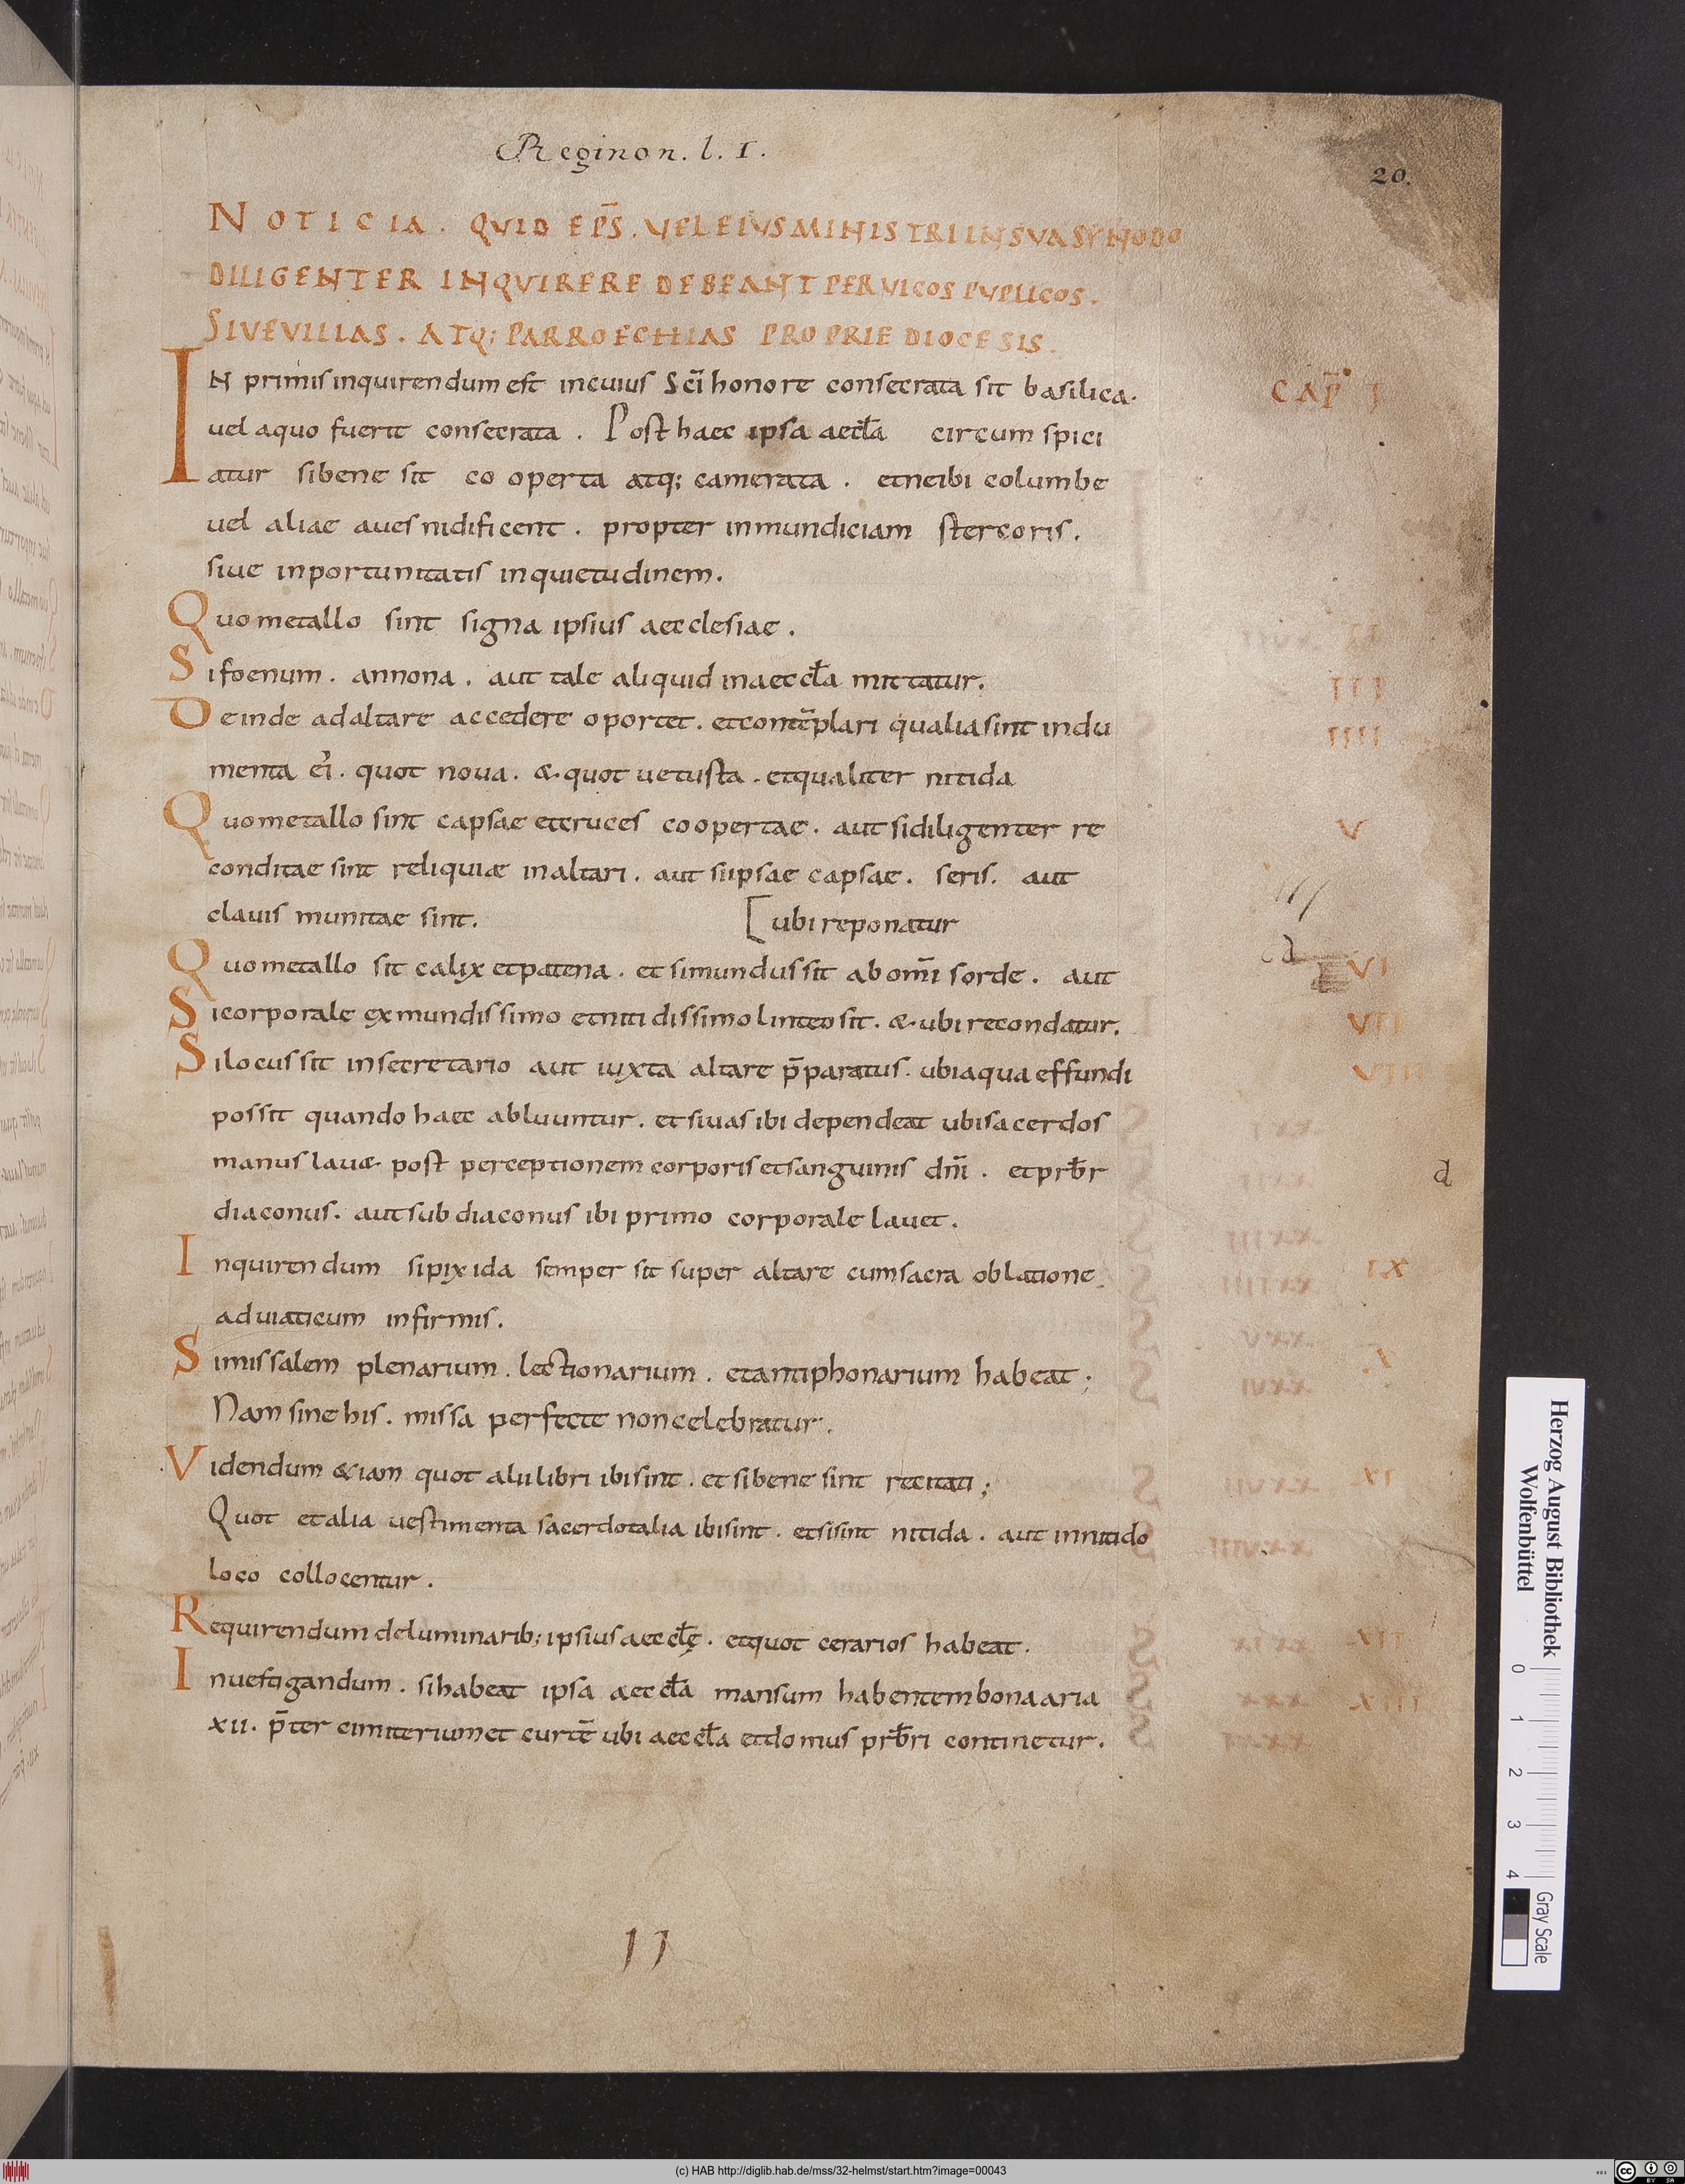 Reginon. l. I.
20.
NOTICIA. QVID EP̄S. VEL EIVS MINISTRI IN SVA SYNODO
DILIGENTER INQVIRERE DEBEANT PER VICOS PVPLICOS.
SIVE VILLAS. ATQ; PARROECHIAS PROPRIE DIOCESIS.
IN primis inquirendum est in cuius Sc̄i honore consecrata sit basilica. CAP̄ I
uel a quo fuerit consecrata. Post haec ipsa aecƚa circumspici
atur si bene sit co operta atq; camerata. et ne ibi columbe
uel aliae aues nidificent. propter inmundiciam stercoris.
siue inportunitatis inquietudinem.
Quo metallo sint signa ipsius aecclesiae. II
Si foenum. annona. aut tale aliquid in aeccƚa mittatur. III
Deinde ad altare accedere oportet. et contēplari qualia sint indu IIII
menta ei᾽. quot noua. & quot uetusta. et qualiter nitida
Quo metallo sint capsae et cruces coopertae. aut si diligenter re V
conditae sint reliquiæ in altari. aut si ipsae capsae. seris. aut
clauis munitae sint. [ubi reponatur
Quo metallo sit calix et patena. et si mundus sit ab om̄i sorde. aut VI
Si corporale ex mundissimo et nitidissimo linteo sit. & ubi recondatur. VII
Si locus sit in secretario aut iuxta altare p̄paratus. ubi aqua effundi VIII
possit quando haec abluuntur. et si uas ibi dependeat ubi sacerdos
manus lau& post perceptionem corporis et sanguinis dn̄i. et prƀr d
diaconus. aut subdiaconus ibi primo corporale lauet.
Inquirendum si pixida semper sit super altare cum sacra oblatione XI
ad uiaticum infirmis.
Si missalem plenarium. lectionarium. et antiphonarium habeat; X.
Nam sine his. missa perfecte non celebratur.
Videndum &iam quot alii libri ibi sint. et si bene sint recitati; IX
Quot et alia uestimenta sacerdotalia ibi sint. et si sint nitida. aut in nitido
loco collocentur.
Requirendum de luminarib; ipsius aeccƚę. et quot cerarios habeat. XII
Inuestigandum. si habeat ipsa aeccƚa mansum habentem bonaaria XIIII
xii. p̄ter cimiterium et curtē ubi aeccƚa et domus prƀri continetur.
II
Herzog August Bibliothek
Wolfenbüttel
0 1 2 3 4
Gray Scale
(c) HAB http://diglib.hab.de/mss/32-helmst/start.htm?image=00043